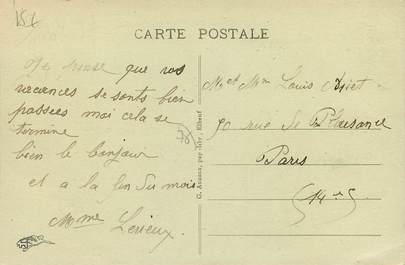 CARTE POSTALE
Je pense que vos
vacances se sonts bien
passées moi cela se
termine
bien le bonjour
et a la fin du mois
Mme Lerieux
Mr et Mme Louis
90 rue de Plaisance
Paris
(14e)